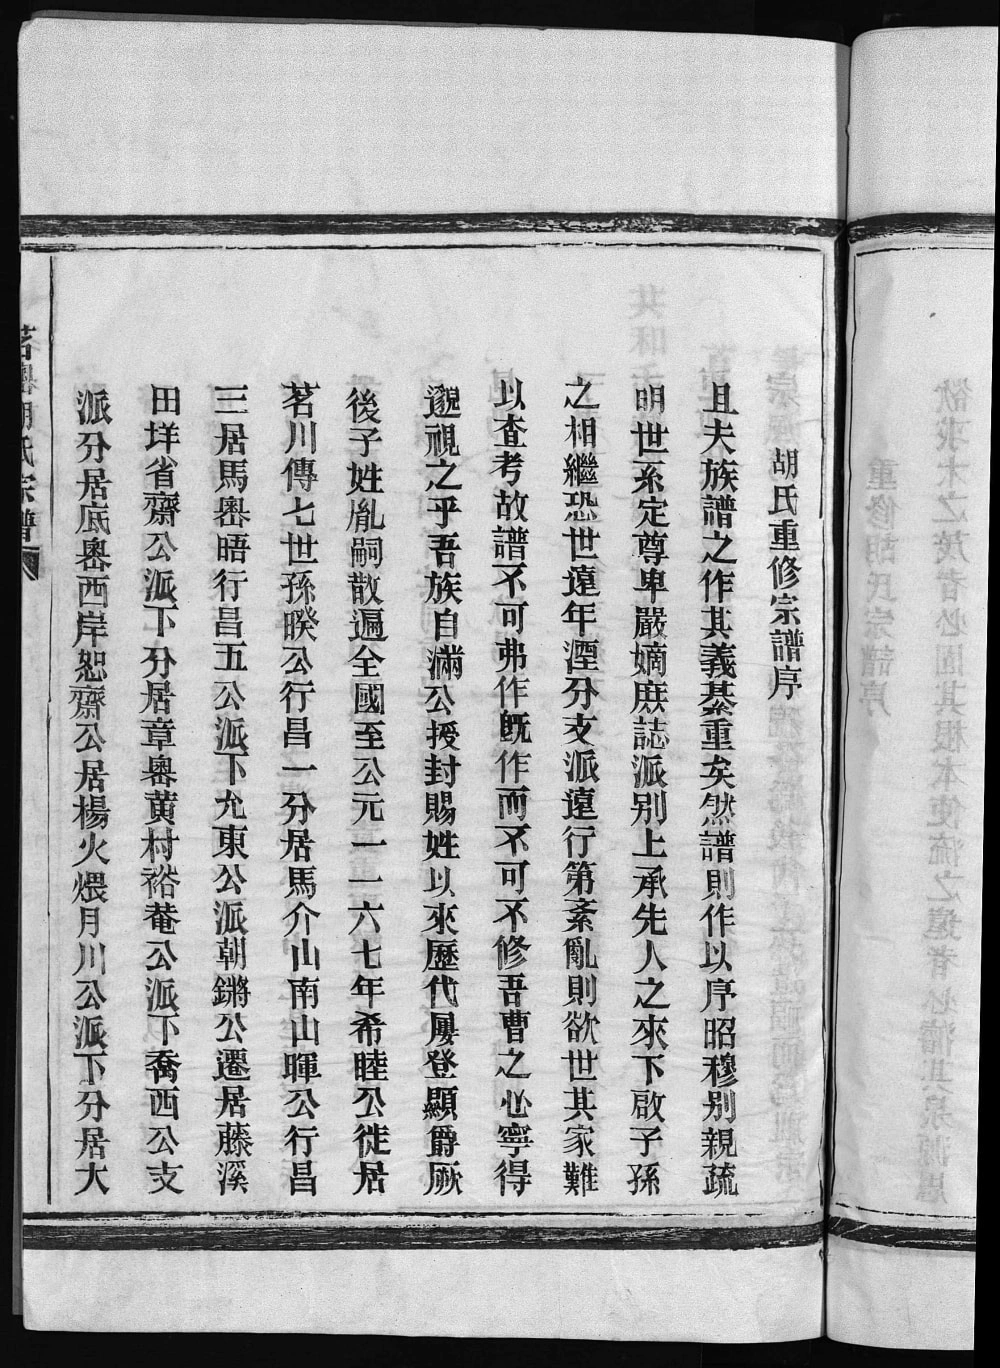 胡氏重修宗譜序
且夫族譜之作其義綦重矣然譜則作以序昭穆别親疏
明世系定尊卑嚴嫡庶誌派别上承先人之來下啟子孫
之相繼恐世遠年湮分支派遠行第紊亂則欲世其家難
以查考故譜不可弗作旣作而不可不修吾曹之必寧得
邈視之乎吾族自滿公授封賜姓以來歷代屢登顯爵厥
後子姓胤嗣散遍全國至公元一一六七年希睦公徙居
茗川傳七世孫暌公行昌一分居馬介山南山暉公行昌
三居馬嶴晤行昌五公派下允東公派朝鏘公遷居藤溪
田垟省齋公派下分居章嶴黄村裕菴公派下喬西公支
派分居底嶴西岸恕齋公居楊火煨月川公派下分居大
茗嶴胡氏宗譜